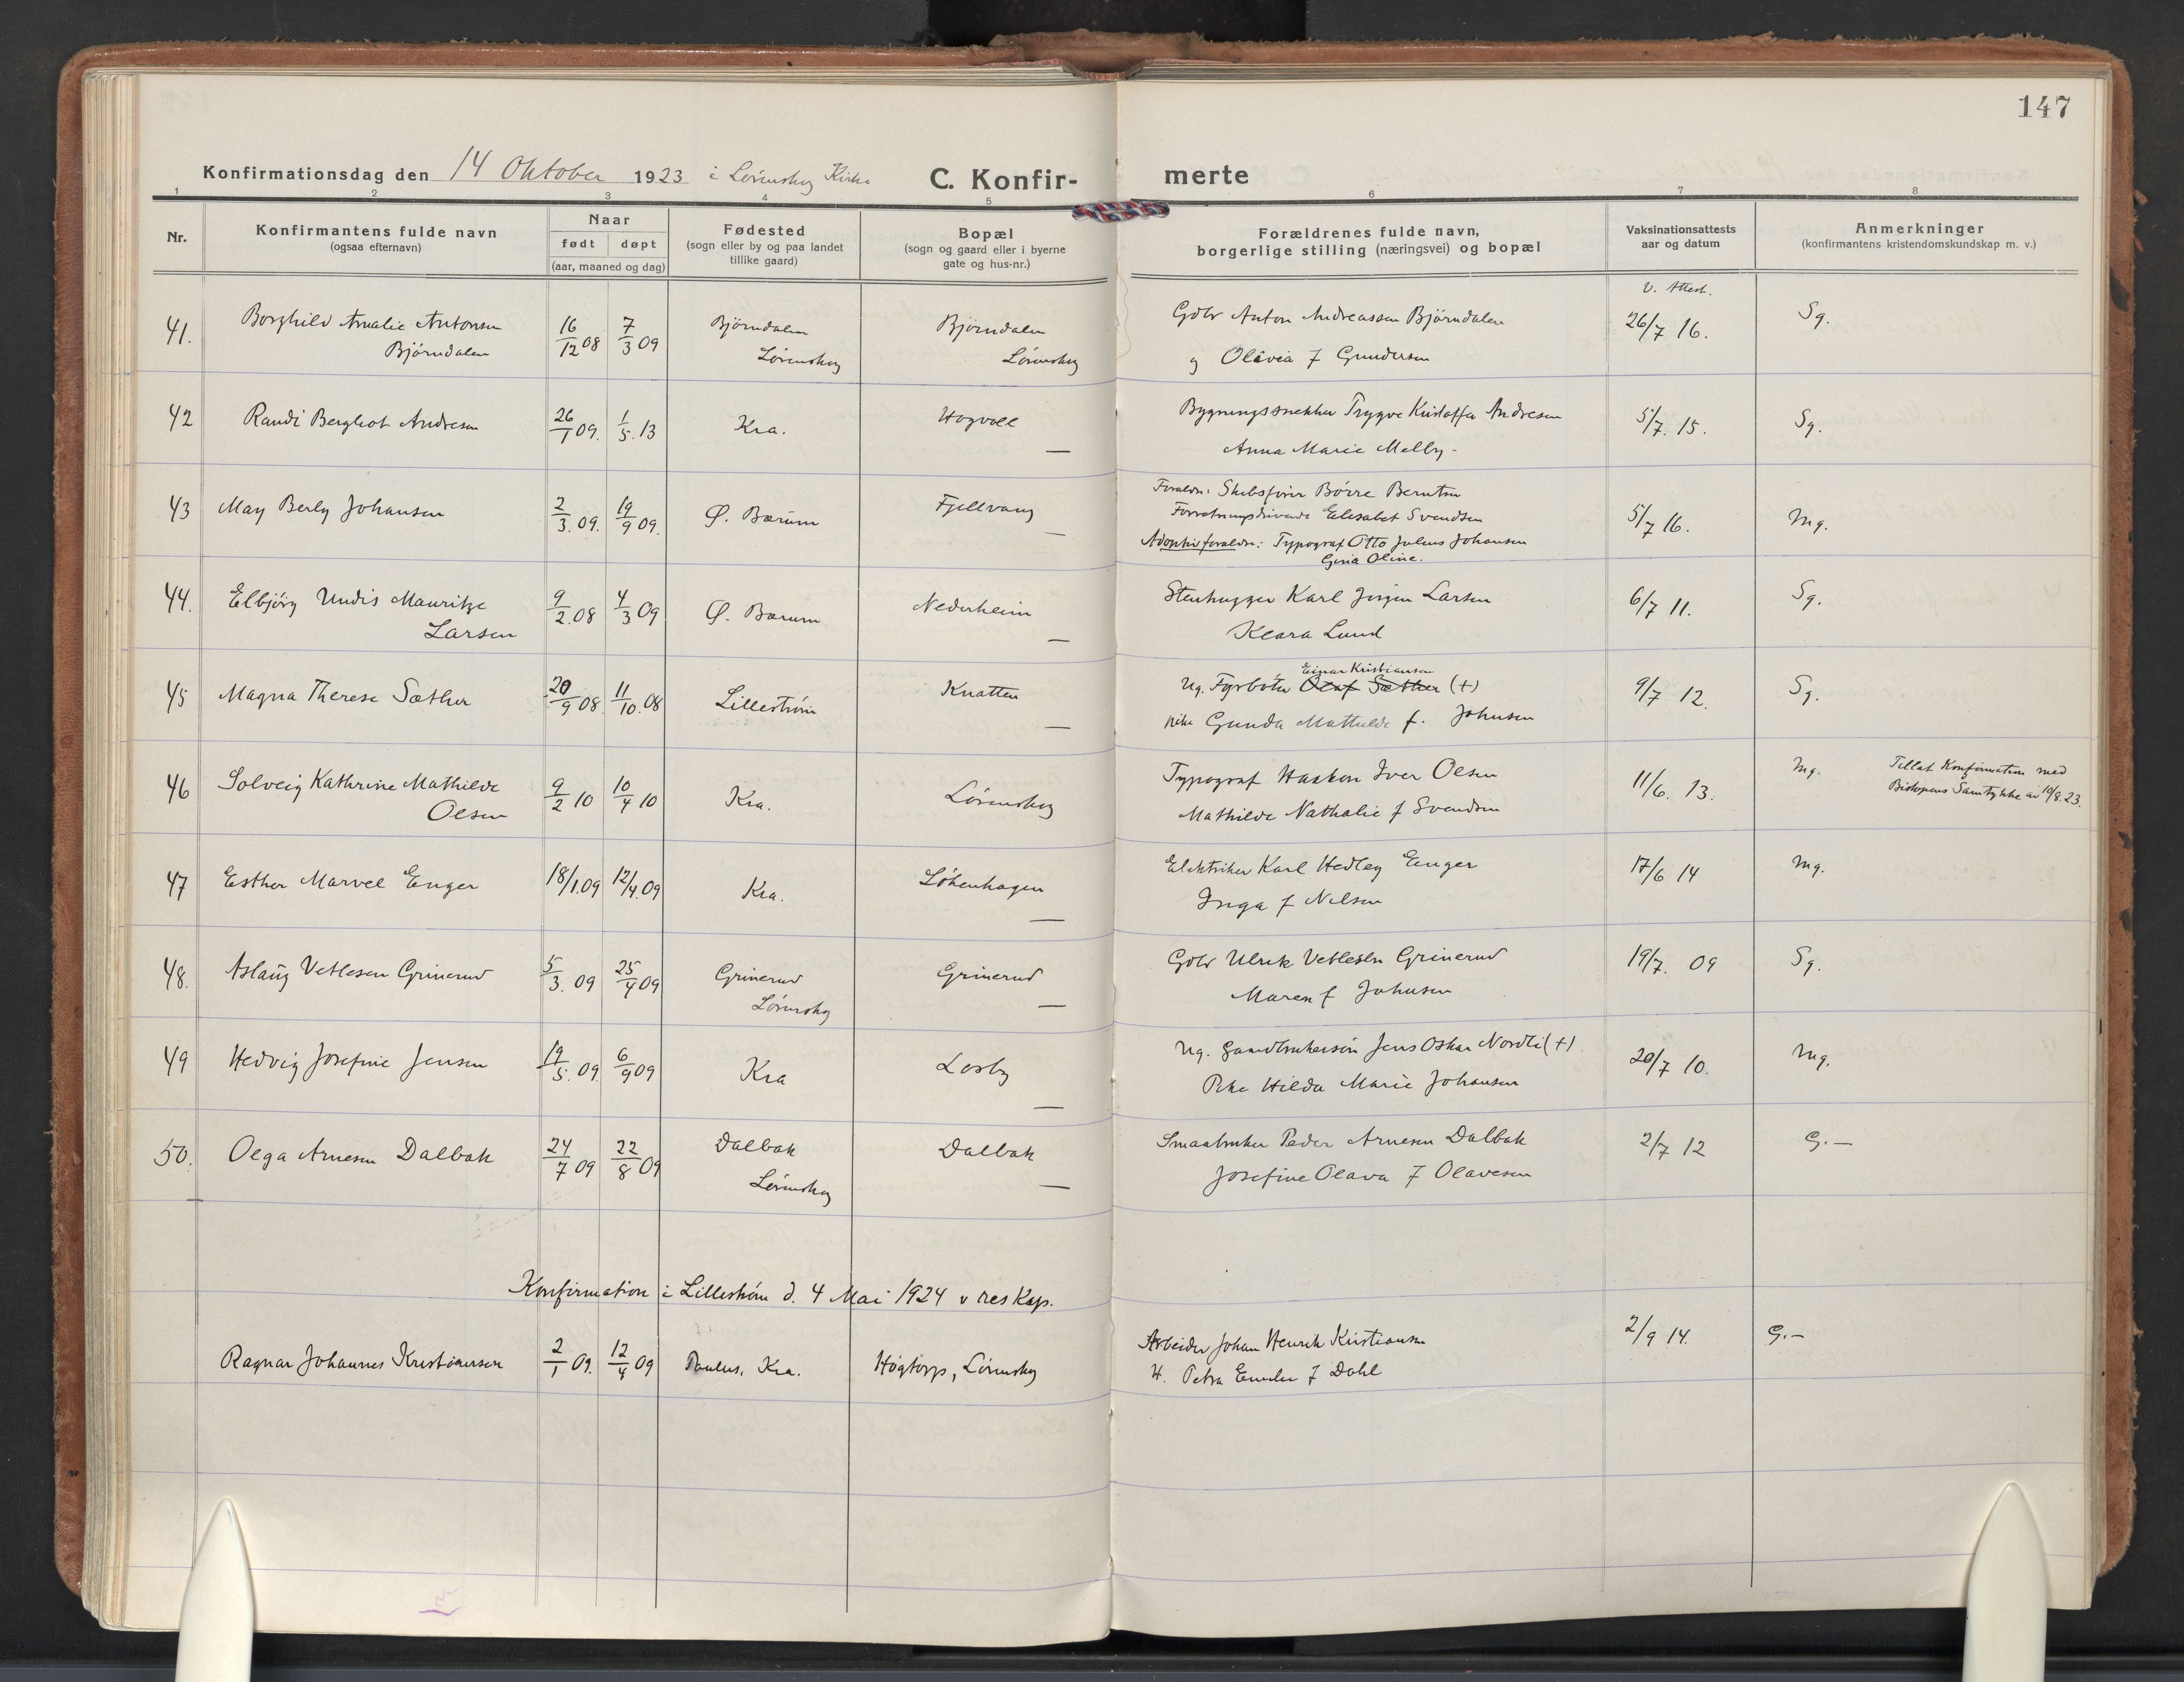 147
Konfirmationsdag den 14 Oktober 1923 i Lørenskog Kirke
C. Konfir-
merte
1 2 3 4 5 6 7 8
Nr.
Konfirmantens fulde navn
(ogsaa efternavn)
Naar
født døpt
(aar, maaned og dag)
Fødested
(sogn eller by og paa landet
tillike gaard)
Bopæl
(sogn og gaard eller i byerne
gate og hus-nr.)
Forældrenes fulde navn,
borgerlige stilling (næringsvei) og bopæl
Vaksinationsattests
aar og datum
Anmerkninger
(konfirmantens kristendomskundskap m. v.)
V. Attest.
41. Borghild Amalie Antonsen 16/12 08 7/3 09 Bjørndalen Bjørndalen Gdbr Anton Andreassen Bjørndalen 26/7 16. Sg.
Bjørndalen Lørenskog Lørenskog og Olivia f Gundersen
42 Randi Bergliot Andresen 26/1 09. 1/5. 13 Kra. Hogvoll Bygningssnekker Trygve Kristoffer Andresen 5/7. 15. Sg.
— Anna Marie Melby -
43 May Berly Johansen 2/3. 09. 19/9 09. Ø. Bærum Fjellvang Foreldre: Skibsfører Børre Berntsen 5/7 16. Mg.
— Forretningsdrivende Elisabet Svendsen
Adoptivforeldre: Typograf Otto Julius Johansen
Gina Oline.
44. Elbjørg Undis Mauritze 9/2. 08 4/3 09 Ø. Bærum Nederheim Stenhugger Karl Jørgen Larsen 6/7 11. Sg.
Larsen — Klara Lund
45 Magna Therese Sæther 20/9 08 11/10. 08 Lillestrøm Knatten Ug. Fyrbøter Olaf Sæther (+) 9/7 12. Sg.
Einar Kristiansen
— pike Gunda Mathilde f. Johnsen
46 Solveig Kathrine Mathilde 9/2 10 10/4 10 Kra. Lørenskog Typograf Haakon Iver Olsen 11/6. 13. Mg. Tillat Konfirmation med
Olsen Mathilde Nathalie f Svendsen Biskopens Samtykke av 10/8. 23.
47 Esther Marvel Enger 18/1. 09 12/4. 09 Kra. Løkenhagen Elektriker Karl Hedley Enger 17/6 14 Mg.
— Inga f Nilsen
48. Aslaug Vetlesen Grinerud 5/3. 09 25/4 09 Grinerud Grinerud Gdbr Ulrik Vetlesen Grinerud 19/7. 09 Sg.
Lørenskog — Maren f Johnsen
49 Hedvig Josefine Jensen 19/5. 09. 6/9 09 Kra Losby Ug. Gaardbrukersøn Jens Oskar Nordli (+) 20/7 10. Mg.
— Pike Hilda Marie Johansen
50. Olga Arnesen Dalbak 24/7 09 22/8 09 Dalbak Dalbak Smaabruker Peder Arnesen Dalbak 2/7 12 G. —
Lørenskog — Josefine Olava f Olavesen
Konfirmation i Lillestrøm d. 4 Mai 1924 v res Kap.
Ragnar Johannes Kristiansen 2/1 09. 12/4 09 Paulus, Kra. Høgtorp, Lørenskog Arbeider Johan Henrik Kristiansen 2/9 14. G. —
H. Petra f Dahl